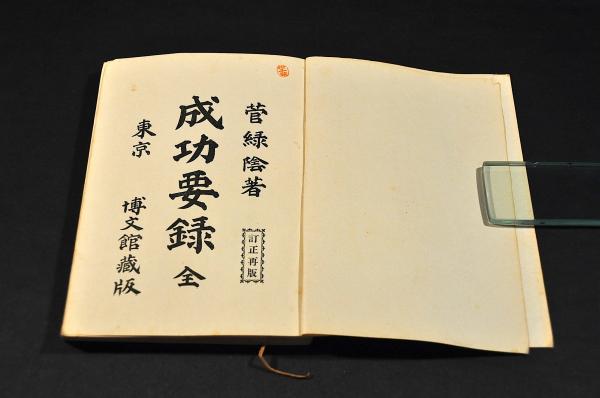 菅緑陰著
訂正再版
成功要録 全
東京 博文館藏版